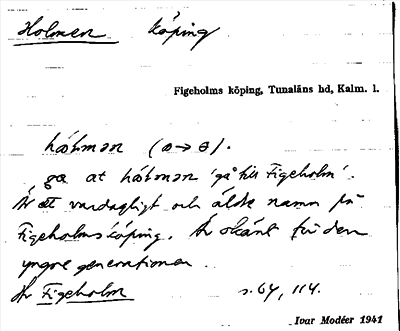 Holmen köping
Figeholms köping, Tunaläns hd, Kalm. l.
hólmən (o→ɵ).
ga at hólmən 'gå till Figeholm'.
Är ett vardagligt och äldre namn på
Figeholms köping. Är okänt för den
yngre generationen.
Hr Figeholm s. 64, 114.
Ivar Modéer 1941